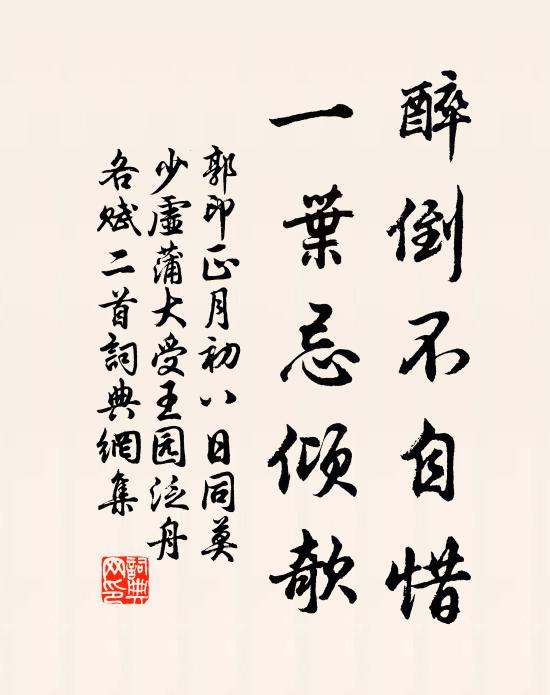 醉倒不自惜
一葉忌傾欹
郭印正月初八日同莫
少虛蒲大受王园泛舟
各賦二首詞典網集
詞典
网印